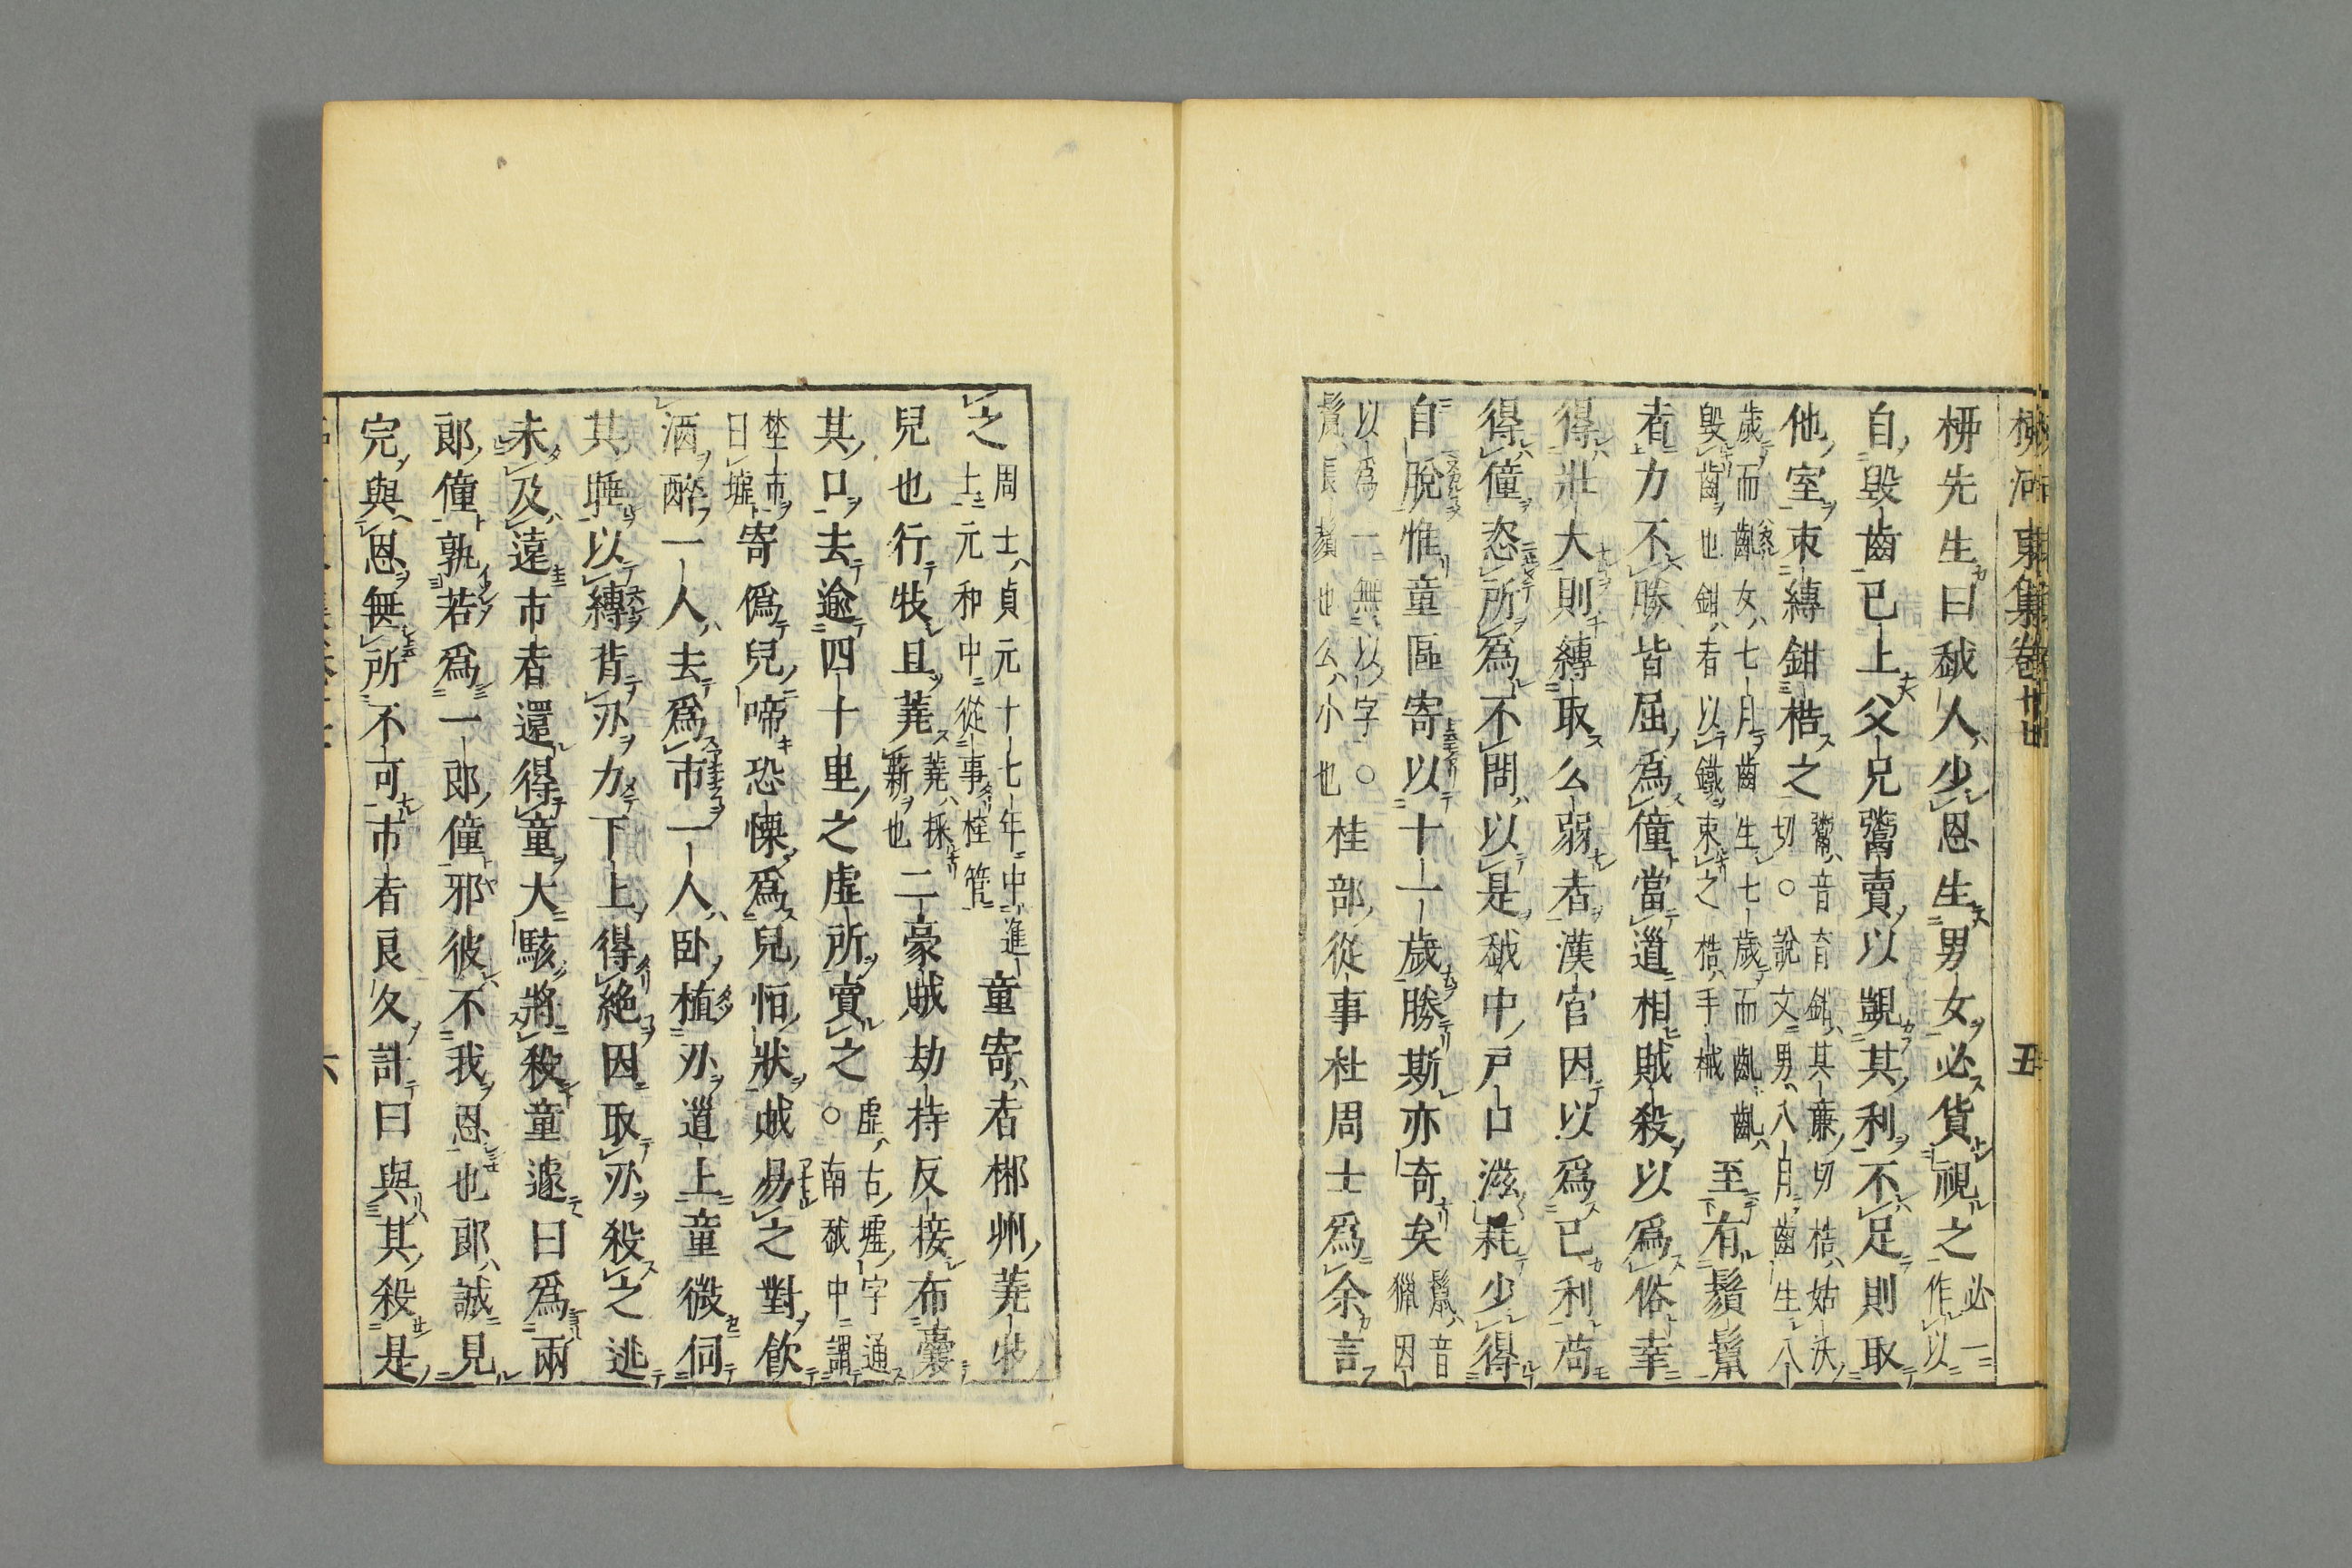 柳先生曰越人少恩生男女必貨視之必一作以
自毀齒已上父兄鬻賣以覬其利不足則取
他室束縛鉗梏之鬻音育鉗其廉切梏姑沃切○說文男八月齒生八
歲而齔女七月齒生七歲而齔齔毀齒也鉗者以鐵束之梏手械至有鬚鬣
者力不勝皆屈爲僮當道相賊殺以爲俗幸
得壯大則縛取么弱者漢官因以爲己利苟
得僮恣所爲不問以是越中戶口滋耗少得
自脫惟童區寄以十一歲勝斯亦奇矣鬣音獵因
以爲一無以字○鬣長鬚也么小也桂部從事杜周士爲余言
之周士貞元十七年中進士元和中從事桂管童寄者郴州蕘牧
兒也行牧且蕘蕘採薪也二豪賊劫持反接布囊
其口去逾四十里之虛所賣之○虛古墟字通南越中謂
埜市曰墟寄僞兒啼恐慄爲兒恒狀賊易之對飮
酒醉一人去爲市一人臥植刃道上童微伺
其睡以縛背刃力下上得絕因取刃殺之逃
未及遠市者還得童大駭將殺童遽曰爲兩
郞僮孰若爲一郞僮邪彼不我恩也郞誠見
完與恩無所不可市者良久計曰與其殺是
柳河東集卷廿
五
六